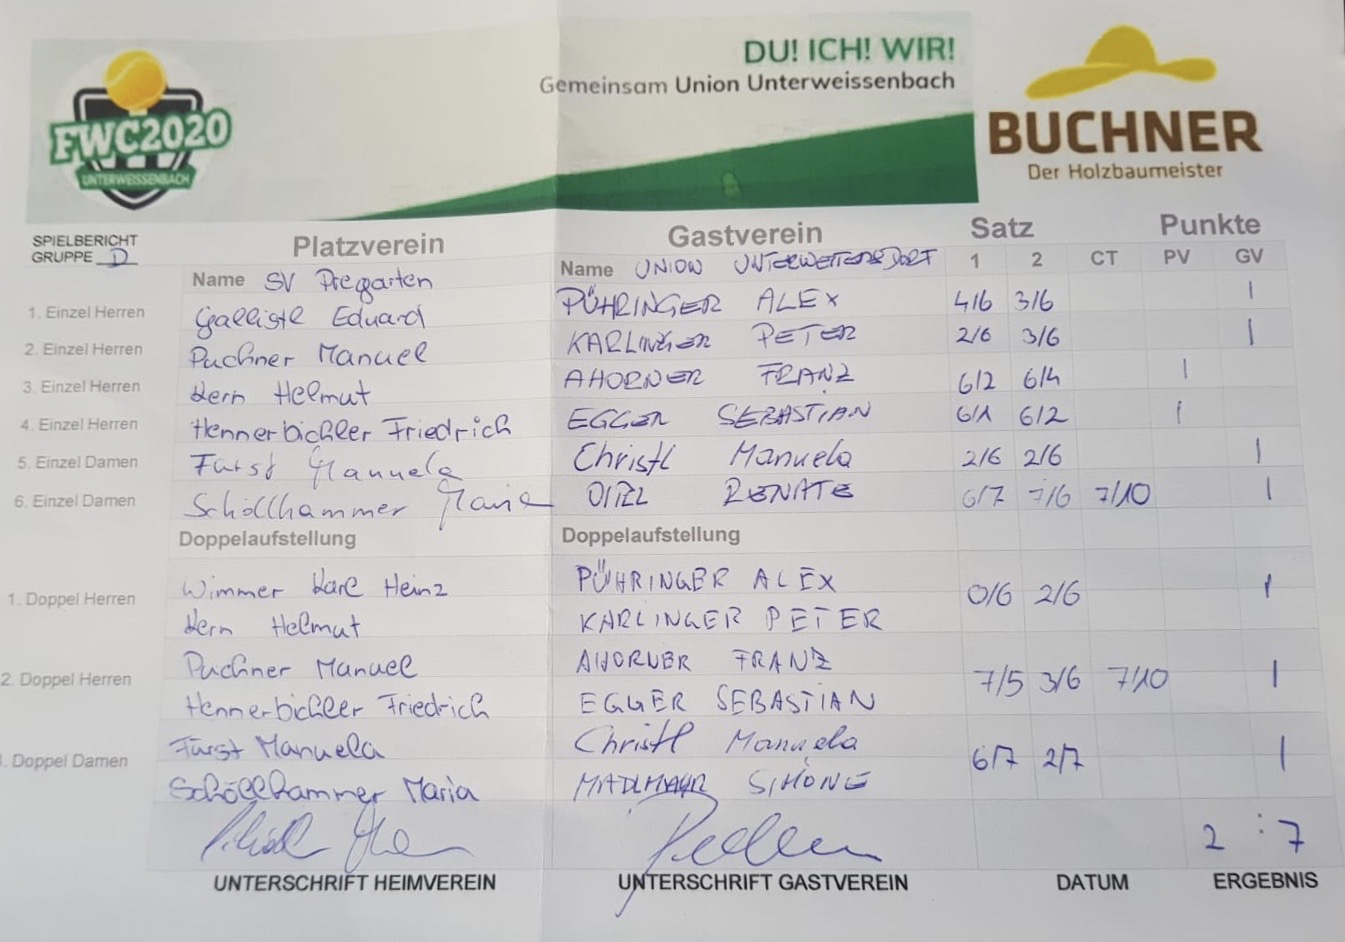 DU! ICH! WIR!
Gemeinsam Union Unterweissenbach
FWC2020
UNTERWEISSENBACH
BUCHNER
Der Holzbaumeister
SPIELBERICHT
GRUPPE D
Platzverein Gastverein Satz Punkte
Name SV Pregarten Name UNION UNTERWEITERSDORF 1 2 CT PV GV
1. Einzel Herren Galliste Eduard PÜHRINGER ALEX 4/6 3/6 |
2. Einzel Herren Puchner Manuel KARLINGER PETER 2/6 3/6 |
3. Einzel Herren Kern Helmut AHORNER FRANZ 6/2 6/4 |
4. Einzel Herren Hennerbichler Friedrich EGGER SEBASTIAN 6/1 6/2 |
5. Einzel Damen Fürst Manuela Christl Manuela 2/6 2/6 |
6. Einzel Damen Schöllhammer Maria RENATE 6/7 7/6 7/10 |
Doppelaufstellung Doppelaufstellung
Wimmer Karl Heinz PÜHRINGER ALEX
1. Doppel Herren 0/6 2/6 |
Kern Helmut KARLINGER PETER
Puchner Manuel AHORNER FRANZ
2. Doppel Herren 7/5 3/6 7/10 |
Hennerbichler Friedrich EGGER SEBASTIAN
Fürst Manuela Christl Manuela
. Doppel Damen 6/7 2/7 |
Schöllhammer Maria MADLMAYR SIMONE
2 : 7
UNTERSCHRIFT HEIMVEREIN UNTERSCHRIFT GASTVEREIN DATUM ERGEBNIS